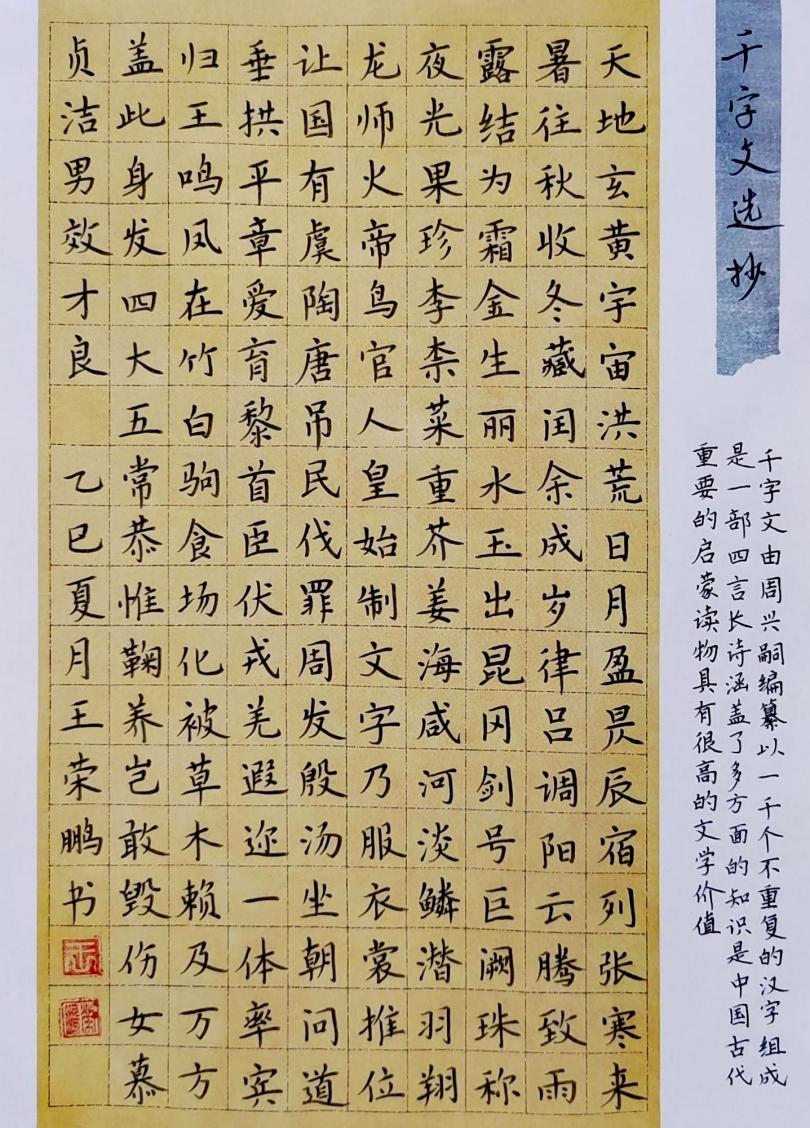 千字文选抄
千字文由周兴嗣编纂以一千个不重复的汉字组成
是一部四言长诗涵盖了多方面的知识是中国古代
重要的启蒙读物具有很高的文学价值
天地玄黄宇宙洪荒日月盈昃辰宿列张寒来
暑往秋收冬藏闰余成岁律吕调阳云腾致雨
露结为霜金生丽水玉出昆冈剑号巨阙珠称
夜光果珍李柰菜重芥姜海咸河淡鳞潜羽翔
龙师火帝鸟官人皇始制文字乃服衣裳推位
让国有虞陶唐吊民伐罪周发殷汤坐朝问道
垂拱平章爱育黎首臣伏戎羌遐迩一体率宾
归王鸣凤在竹白驹食场化被草木赖及万方
盖此身发四大五常恭惟鞠养岂敢毁伤女慕
贞洁男效才良 乙巳夏月王荣鹏书